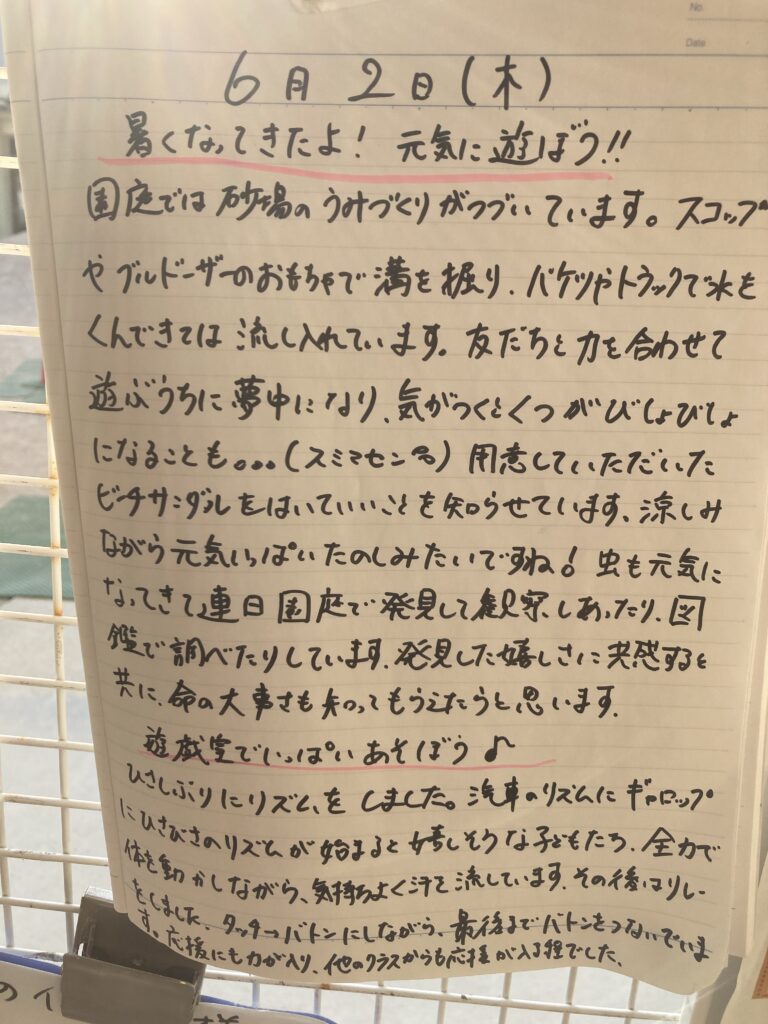 No.
Date
6月 2日(木)
暑くなってきたよ! 元気に遊ぼう!!
園庭では砂場のうみづくりがつづいています。スコップ
やブルドーザーのおもちゃで溝を掘り、バケツやトラックで水を
くんできては流し入れています。友だちと力を合わせて
遊ぶうちに夢中になり、気がつくとくつがびしょびしょ
になることも。。。(スミマセン) 用意していただいた
ビーチサンダルをはいていいことを知らせています、涼しみ
ながら元気いっぱいたのしみたいですね! 虫も元気に
なってきて連日園庭で発見して観察しあったり、図
鑑で調べたりしています、発見した嬉しさに共感すると
共に、命の大事さも知ってもらえたらと思います。
遊戯室でいっぱいあそぼう♪
ひさしぶりにリズムをしました。汽車のリズムにギャロップ
にひさびさのリズムが始まると嬉しそうな子どもたち、全力で
体を動かしながら、気持ちよく汗を流しています、その後はリレー
をしました、タッチ→バトンにしながら、最後までバトンをつないでいま
す。応援にも力が入り、他のクラスからも応援が入る程でした、
のイ
様